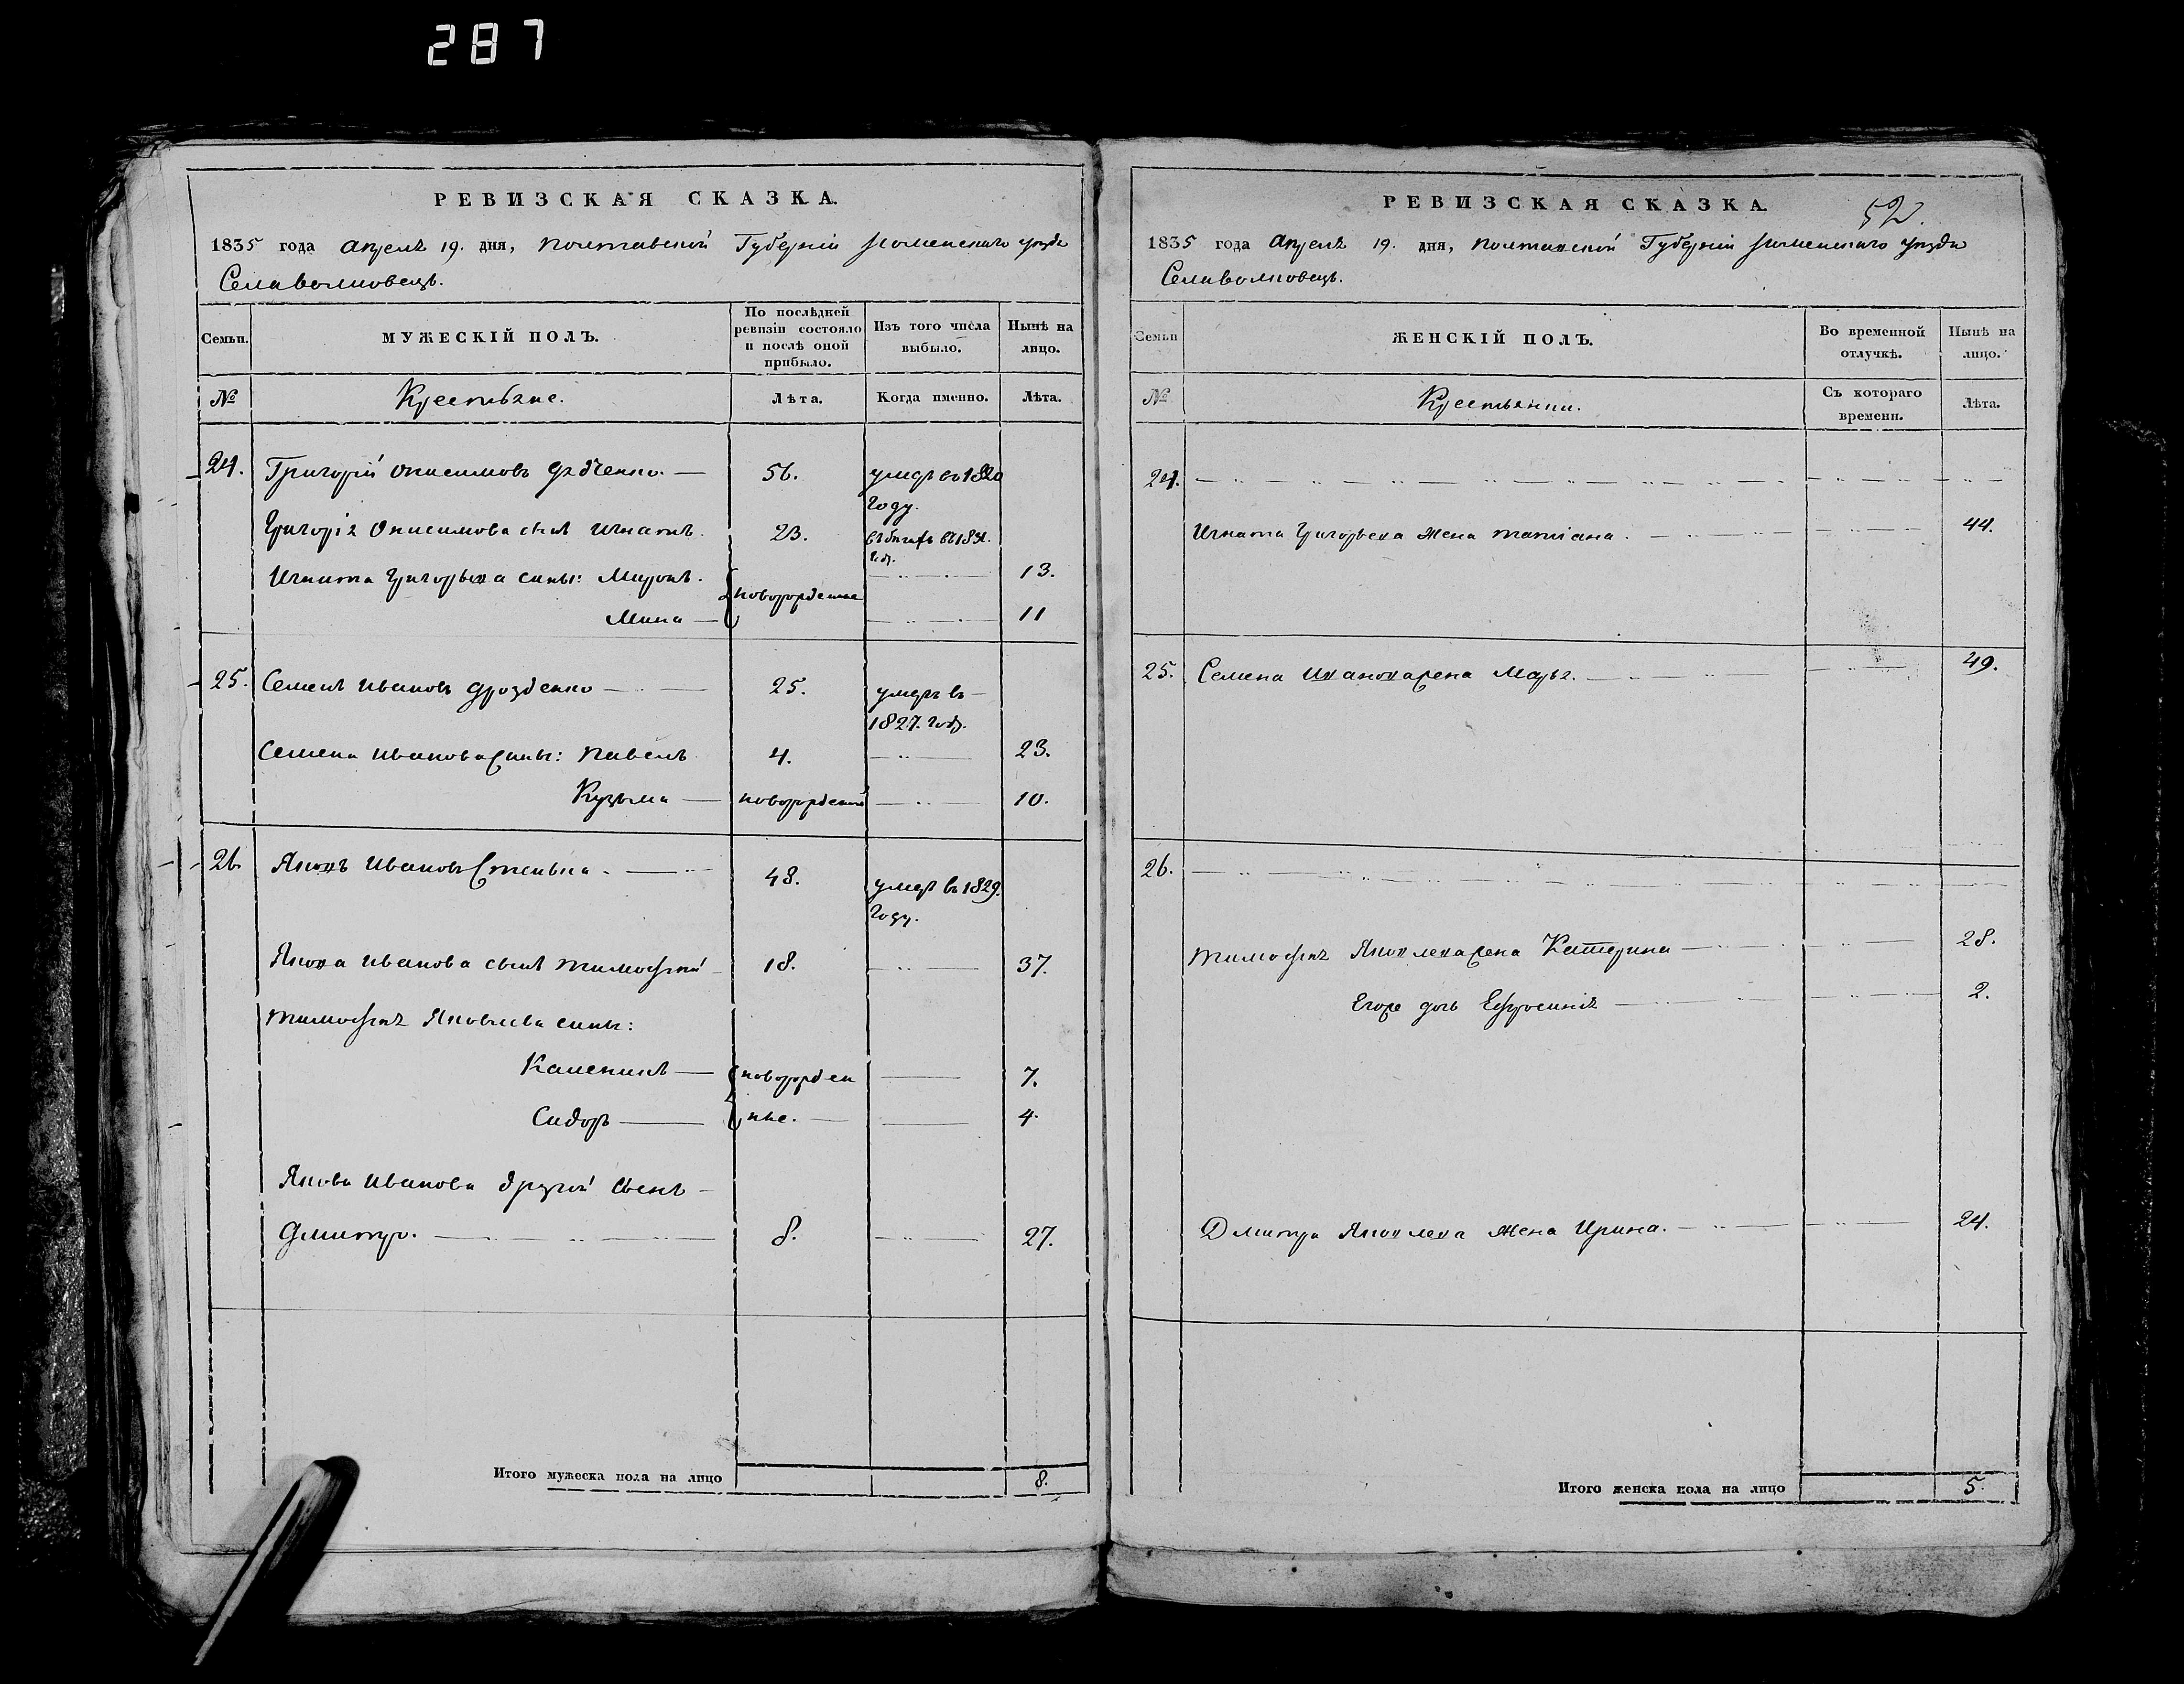 287
РЕВИЗСКАЯ СКАЗКА.
1835 года Апреля 19. дня, Полтавской Губернiи Роменскаго уезда
Села Волковець.
Семьи.
МУЖЕСКIЙ ПОЛЪ.
По послѣдней ревизiи состояло и послѣ оной прибыло.
Изъ того числа выбыло.
Нынѣ на лицо.
№
Крестьяне.
Лѣта.
Когда именно.
Лѣта.
24. Григорiй Онисимовъ 56. умеръ въ 1820
году.
Григорiя Онисимова сынъ Игнатъ. 23. въ бегахъ въ 1831.
год.
Игната Григорьева сины: Миронъ. новорожденые 13.
Мина 11
25. Семенъ Ивановъ Дрозденко 25. умеръ въ
1827. году.
Семена Иванова сины: Павелъ 4. 23.
Кузьма новорожденой 10.
26. Яковъ Ивановъ 48. умеръ въ 1829.
году.
Якова Иванова сынъ Тимофей 18. 37.
Тимофея Яковлева сины:
Каленикъ новорожден 7.
Сидоръ ные. 4.
Якова Иванова другой сынъ
Дмитро. 8. 27.
Итого мужеска пола на лицо 8.
РЕВИЗСКАЯ СКАЗКА.
52.
1835 года Апреля 19. дня, Полтавской Губернiи Роменскаго уезда
Села Волковець.
Семьи
ЖЕНСКIЙ ПОЛЪ.
Во временной отлучкѣ.
Нынѣ на лицо.
№
Крестьянки.
Съ котораго времени.
Лѣта.
24.
Игната Григорьева жена Татiана. 44.
25. Семена Иванова жена Марья. 49.
26.
Тимофея Яковлева жена Катерина 28.
Егоже дочь Ефросинiя 2.
Дмитра Яковлева жена Ирина. 24.
Итого женска пола на лицо 5.